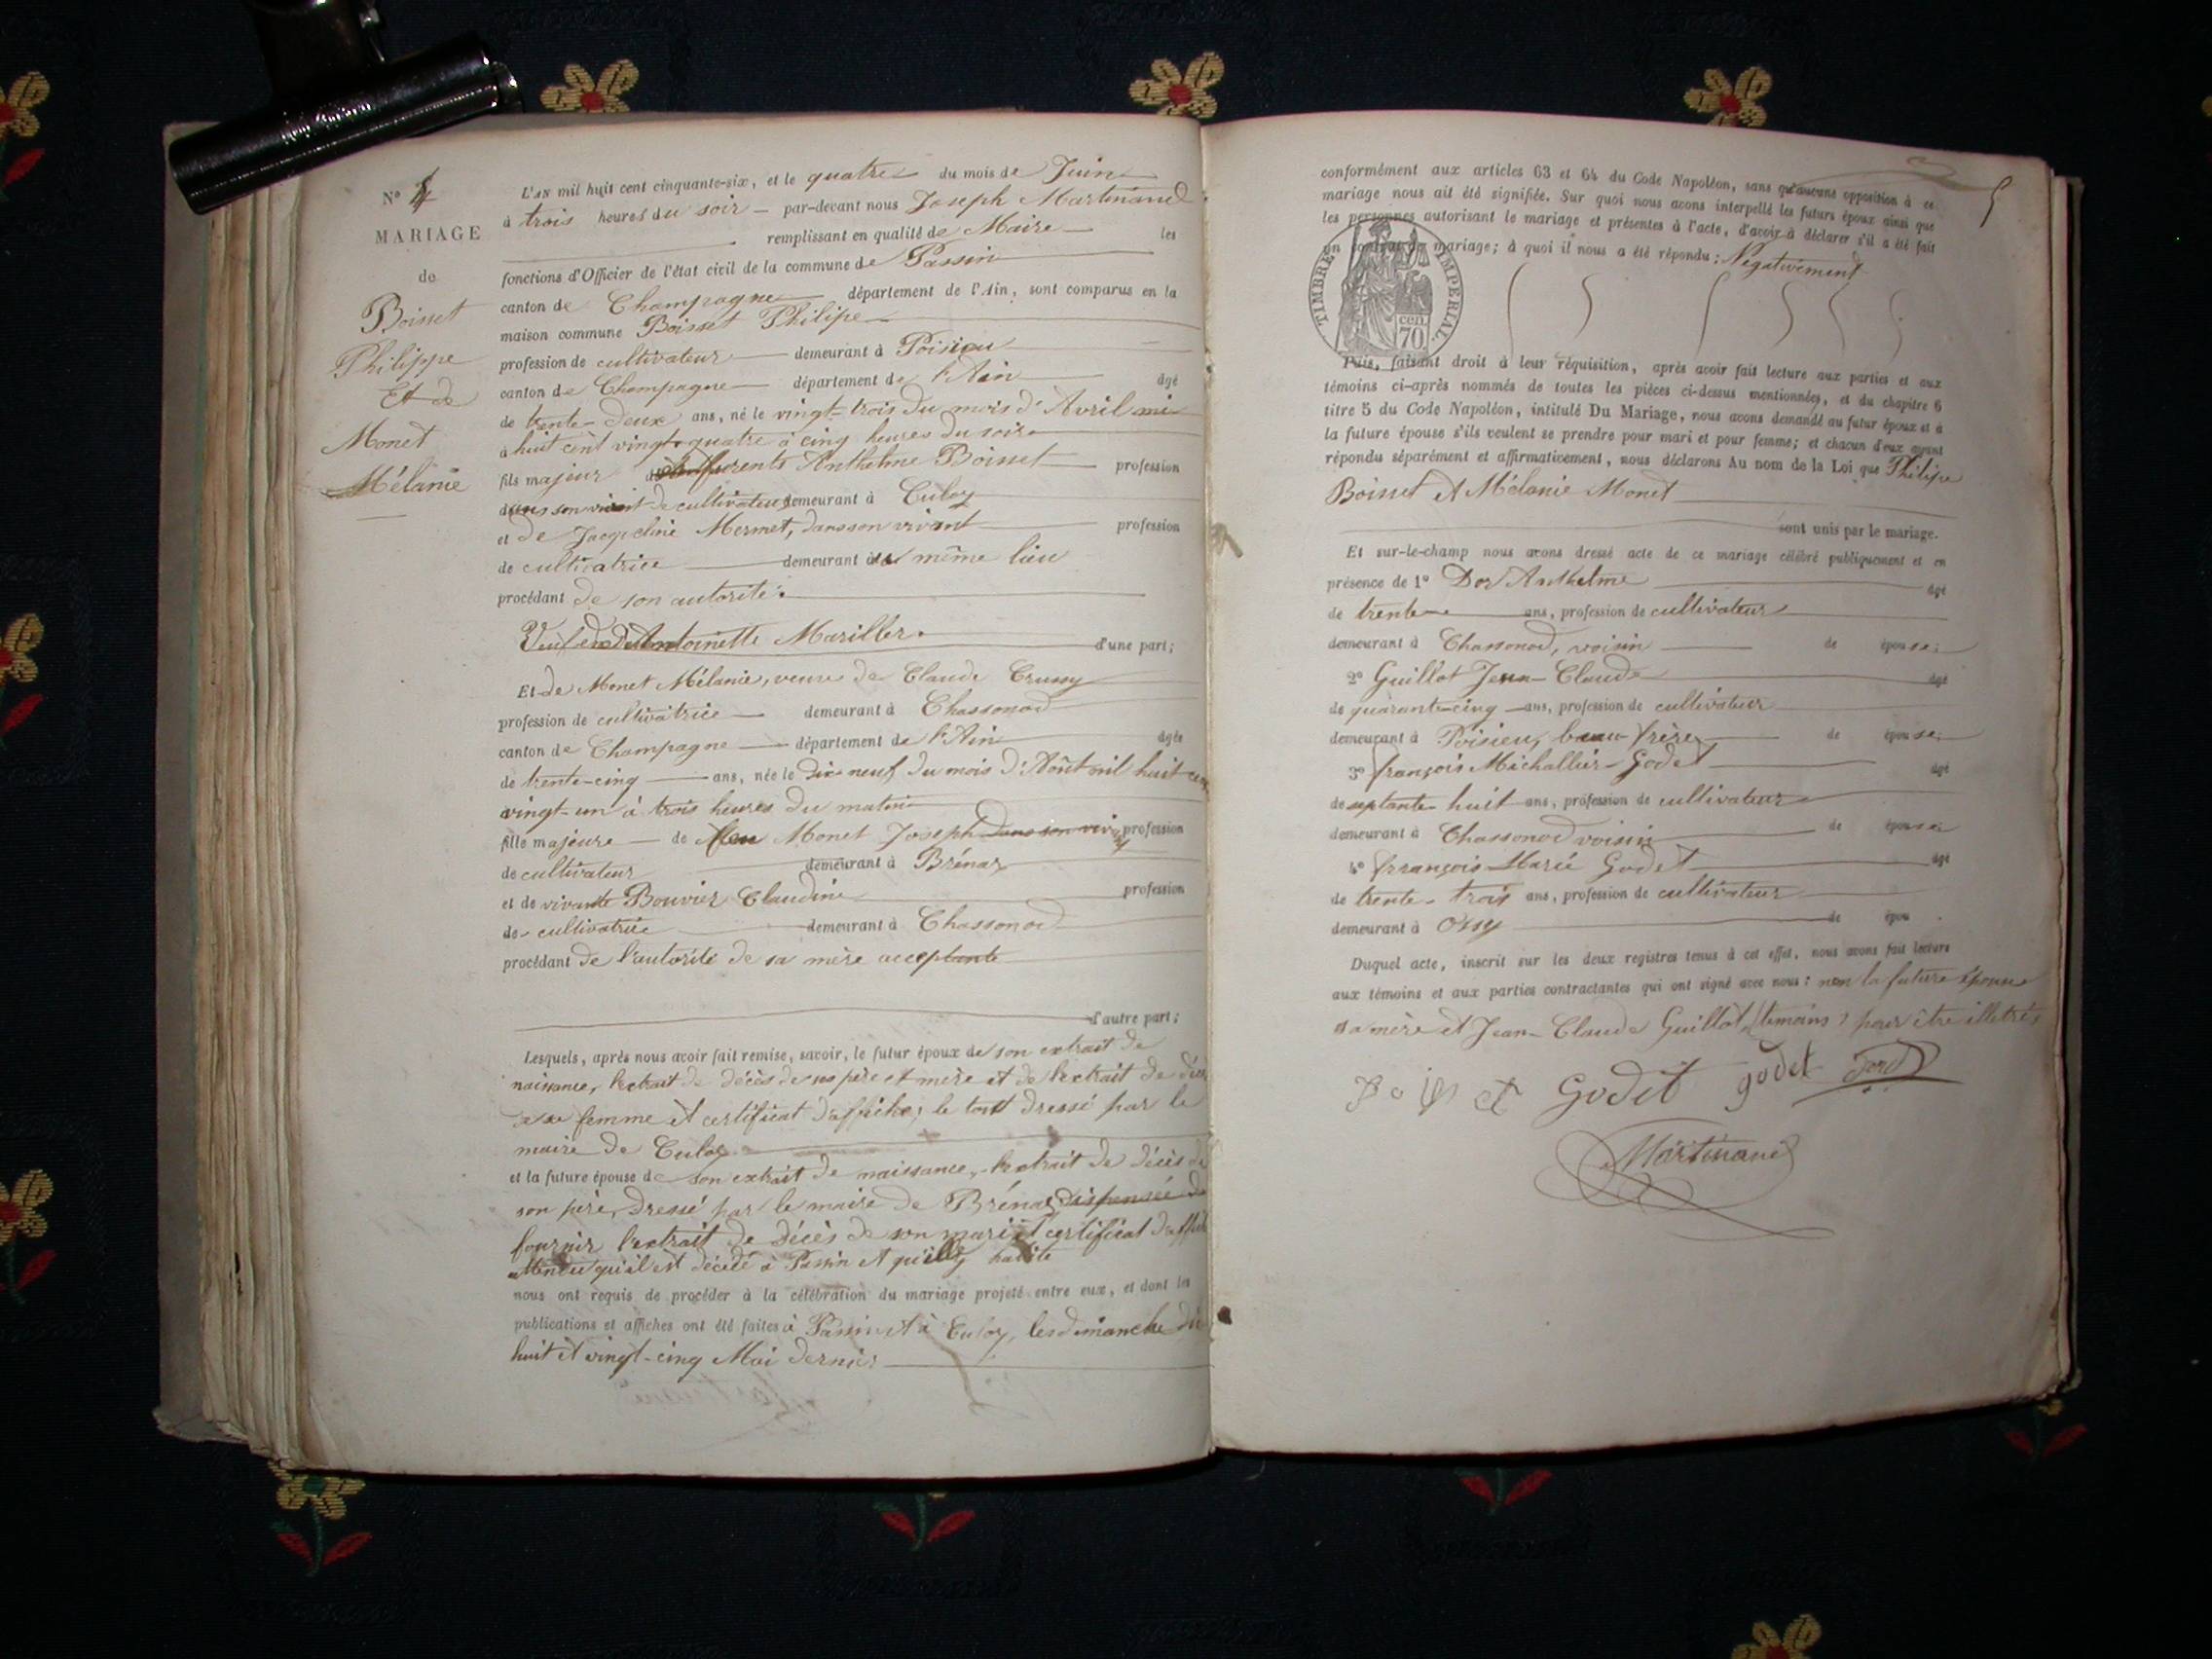 N° 4
MARIAGE
de
Boisset
Philippe
Et de
Monet
Mélanie
L'AN mil huit cent cinquante-six, et le quatre du mois de Juin
à trois heures du soir par-devant nous Joseph Martinand
remplissant en qualité de Maire les
fonctions d'Officier de l'état civil de la commune de Passin
canton de Champagne département de l'Ain, sont comparus en la
maison commune Boisset Philipe
profession de cultivateur demeurant à Poisieu
canton de Champagne département de l'Ain âgé
de trente-deux ans, né le vingt-trois du mois d'Avril mi
à huit cent vingt-quatre à cinq heures du soir
fils majeur Anthelme Boisset profession
dans son vivant de cultivateur demeurant à Culoz
et de Jacqueline Mermet, dans son vivant profession
de cultivatrice demeurant au même lieu
procédant de son autorité.
Veuf Antoinette Mariller. d'une part;
Et de Monet Mélanie, veuve de Claude Crussy
profession de cultivatrice demeurant à Chassonod
canton de Champagne département de l'Ain âgée
de trente-cinq ans, née le dix neuf du mois d'Août mil huit cent
vingt-un à trois heures du matin
fille majeure de feu Monet Joseph dans son vivant profession
de cultivateur demeurant à Brénaz
et de vivante Bouvier Claudine profession
de cultivatrice demeurant à Chassonod
procédant de l'autorité de sa mère acceptante
d'autre part;
Lesquels, après nous avoir fait remise, savoir, le futur époux de son extrait de
naissance, l'extrait de décès de ses père et mère et de l'extrait de décès
de sa femme et certificat d'affiche; le tout dressé par le
maire de Culoz
et la future épouse de son extrait de naissance, l'extrait de décès de
son père, dressé par le maire de Brénaz dispensée de
fournir l'extrait de décès de son mari et certificat d'affiche
attendu qu'il est décédé à Passin et qu'elle y habite
nous ont requis de procéder à la célébration du mariage projeté entre eux, et dont les
publications et affiches ont été faites à Passin et à Culoz, les dimanche dix
huit et vingt-cinq Mai dernier
5
conformément aux articles 63 et 64 du Code Napoléon, sans qu'aucune opposition à ce
mariage nous ait été signifiée. Sur quoi nous avons interpellé les futurs époux ainsi que
les personnes autorisant le mariage et présentes à l'acte, d'avoir à déclarer s'il a été fait
un contrat de mariage; à quoi il nous a été répondu: Négativement
TIMBRE IMPERIAL.
cen.
70.
Puis, faisant droit à leur réquisition, après avoir fait lecture aux parties et aux
témoins ci-après nommés de toutes les pièces ci-dessus mentionnées, et du chapitre 6
titre 5 du Code Napoléon, intitulé Du Mariage, nous avons demandé au futur époux et à
la future épouse s'ils veulent se prendre pour mari et pour femme; et chacun d'eux ayant
répondu séparément et affirmativement, nous déclarons Au nom de la Loi que Philipe
Boisset et Mélanie Monet
sont unis par le mariage.
Et sur-le-champ nous avons dressé acte de ce mariage célébré publiquement et en
présence de 1° Dor Anthelme âgé
de trente ans, profession de cultivateur
demeurant à Chassonod, voisin de épouse;
2° Guillot Jean-Claude âgé
de quarante-cinq ans, profession de cultivateur
demeurant à Poisieu, beau-frère de épouse;
3° françois Michallier-Godet âgé
de septante-huit ans, profession de cultivateur
demeurant à Chassonod voisin de épouse
4° françois Marie Godet âgé
de trente-trois ans, profession de cultivateur
demeurant à Ossy de épou .
Duquel acte, inscrit sur les deux registres tenus à cet effet, nous avons fait lecture
aux témoins et aux parties contractantes qui ont signé avec nous: non la future épouse
sa mère et Jean-Claude Guillot (témoins) pour être illetrés
Boisset Godet godet Dord
Martinand